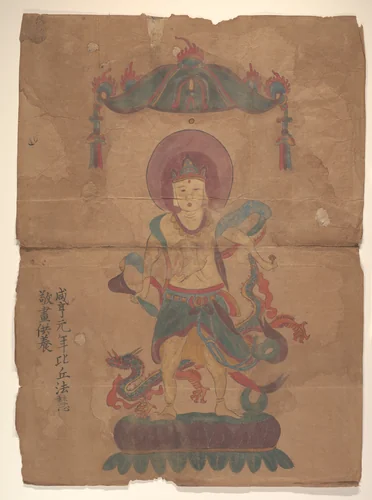 咸亨元年比丘法
敬畫供養